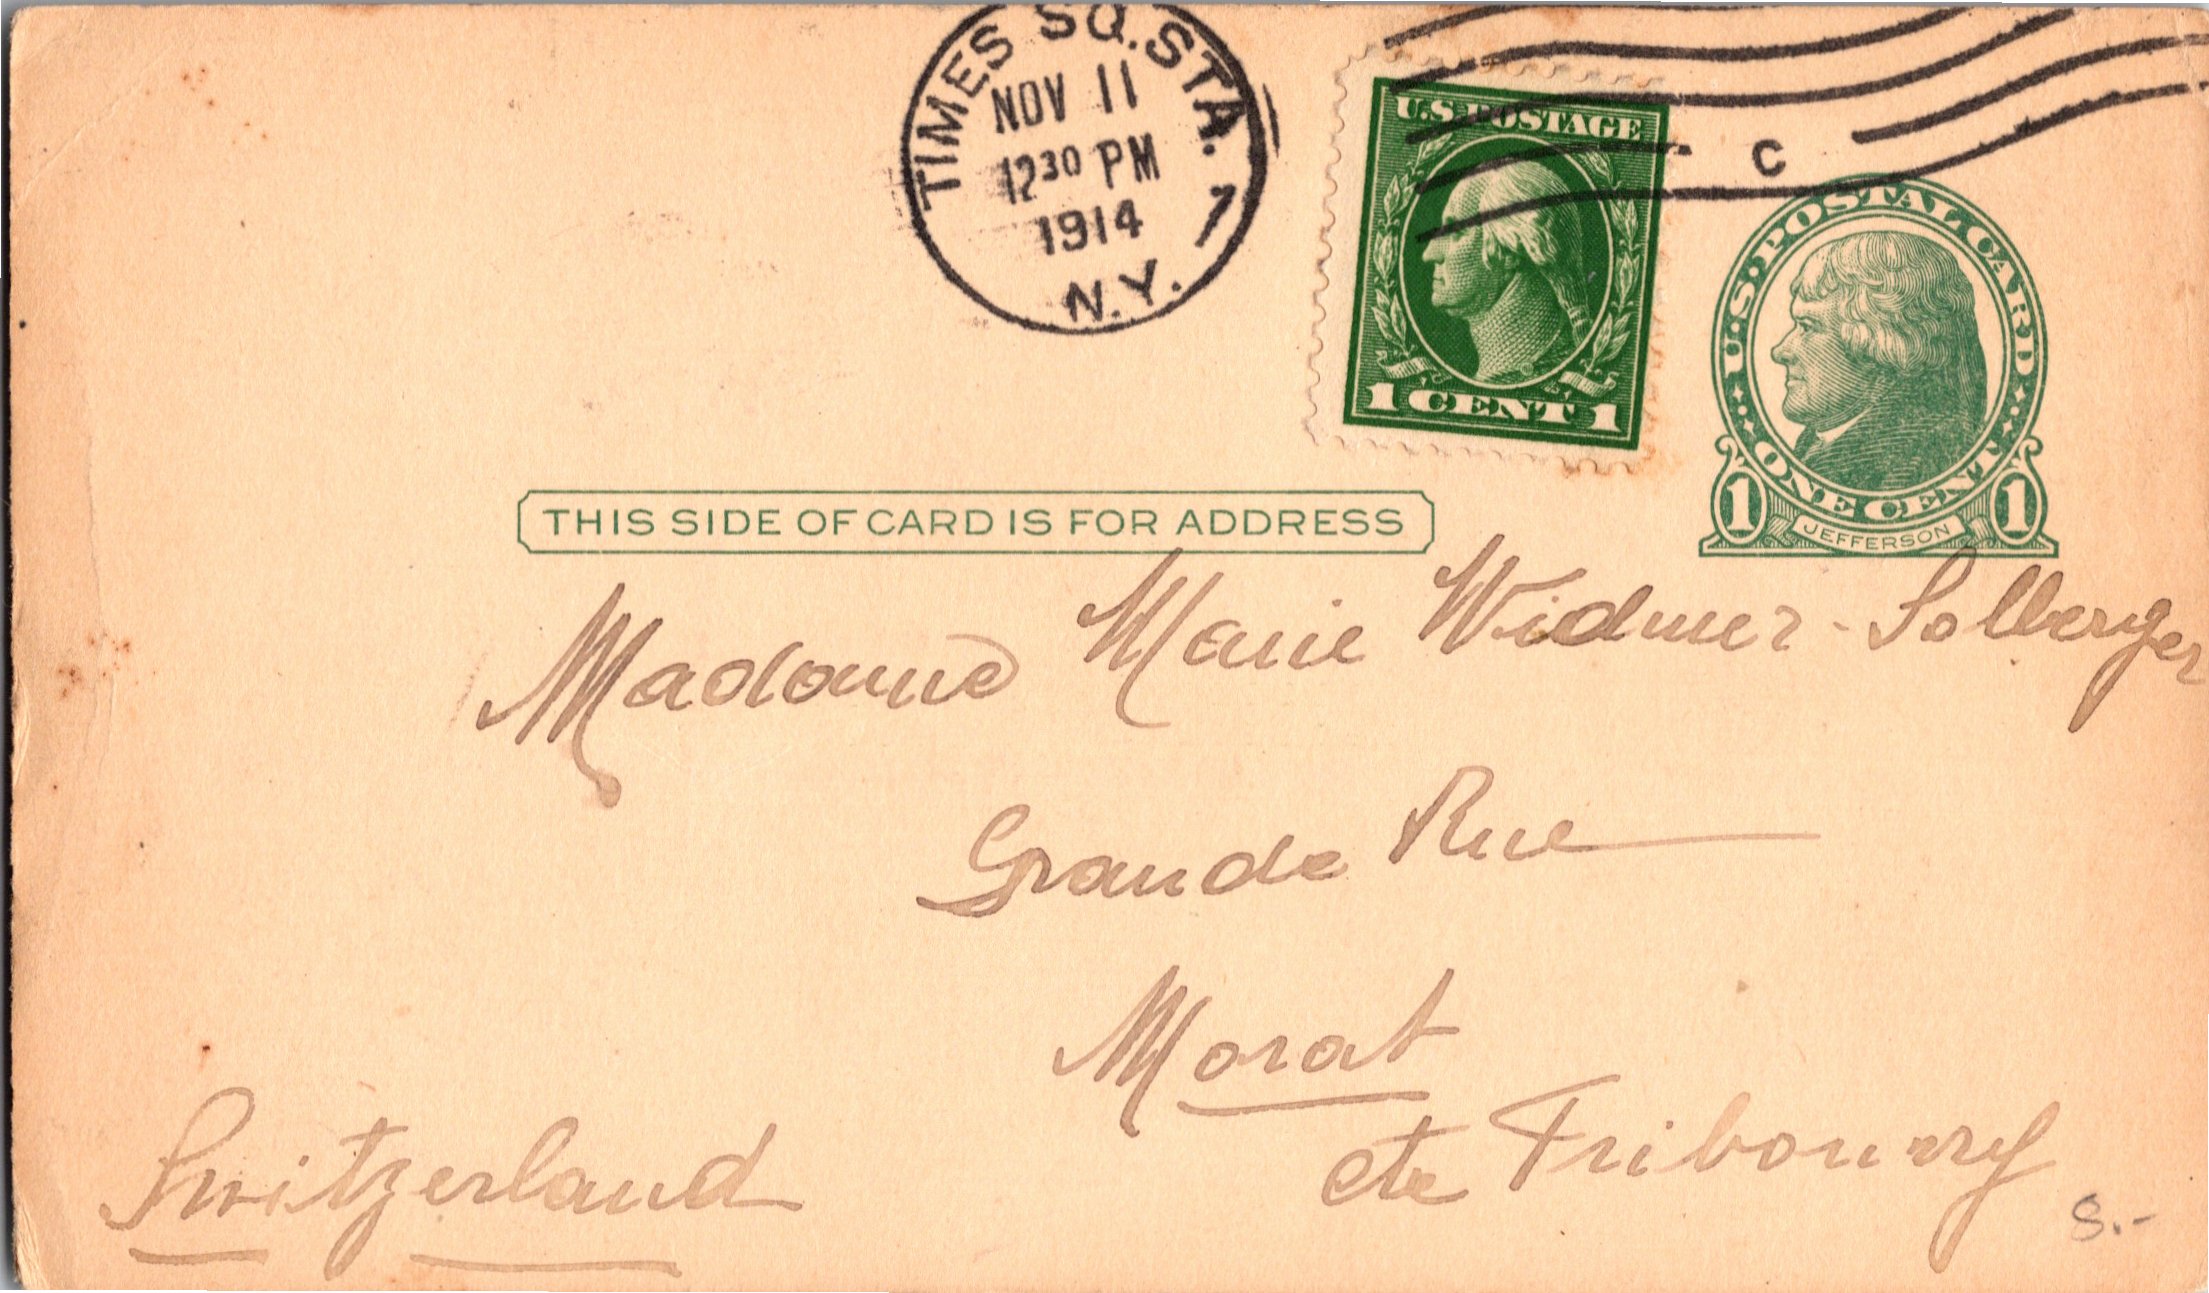 TIMES SQ. STA. 7
NOV 11
12 30 PM
1914
N.Y.
C
U.S. POSTAGE
1 CENT 1
U.S. POSTAL CARD
ONE CENT
1 JEFFERSON 1
THIS SIDE OF CARD IS FOR ADDRESS
Madame Marie Widmer-Sollberger
Grande Rue
Morat
cte Fribourg
Switzerland